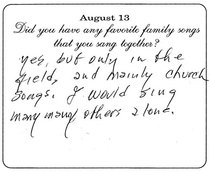 August 13
Did you have any favorite family songs
that you sang together?
yes, but only in the
field, and mainly church
songs. I would sing
many many others alone.